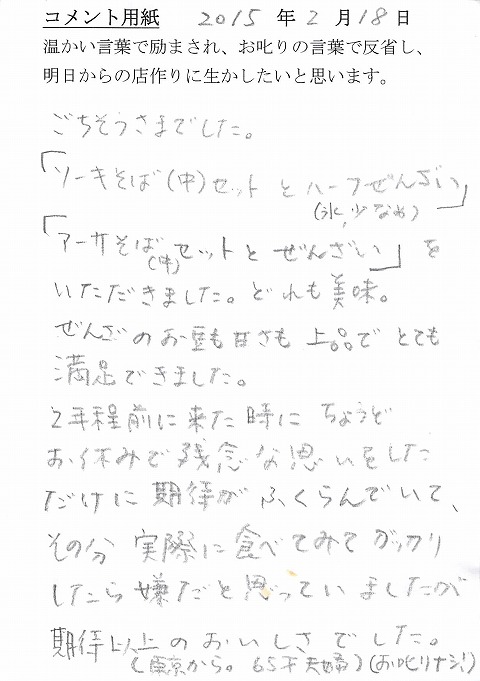 コメント用紙 2015 年 2 月 18 日
温かい言葉で励まされ、お叱りの言葉で反省し、
明日からの店作りに生かしたいと思います。
ごちそうさまでした。
「ソーキそば(中)セットとハーフぜんざい」
(氷、少なめ)
「アーサそばセットとぜんざい」を
(中)
いただきました。どれも美味。
ぜんざのお豆も甘さも上品でとても
満足できました。
2年程前に来た時にちょうど
お休みで残念な思いをした
だけに期待がふくらんでいて、
その分実際に食べてみてガッカリ
したら嫌だと思っていましたが
期待以上のおいしさでした。
(東京から。65才夫婦)(お叱りナシ!)